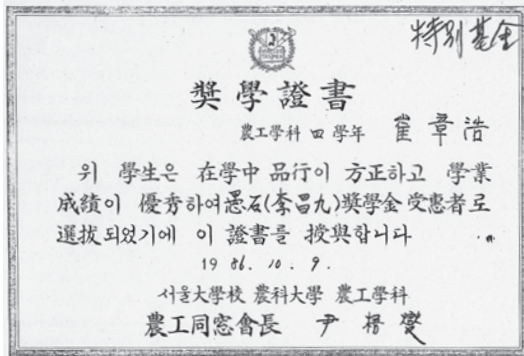 特別基金
奬學證書
農工學科 四 學年 崔 章 浩
위 學生은 在學中 品行이 方正하고 學業
成績이 優秀하여 (李昌九)奬學金 受惠者로
選拔되었기에 이 證書를 授與합니다
1986. 10. 9.
서울大學校 農科大學 農工學科
農工同窓會長 尹